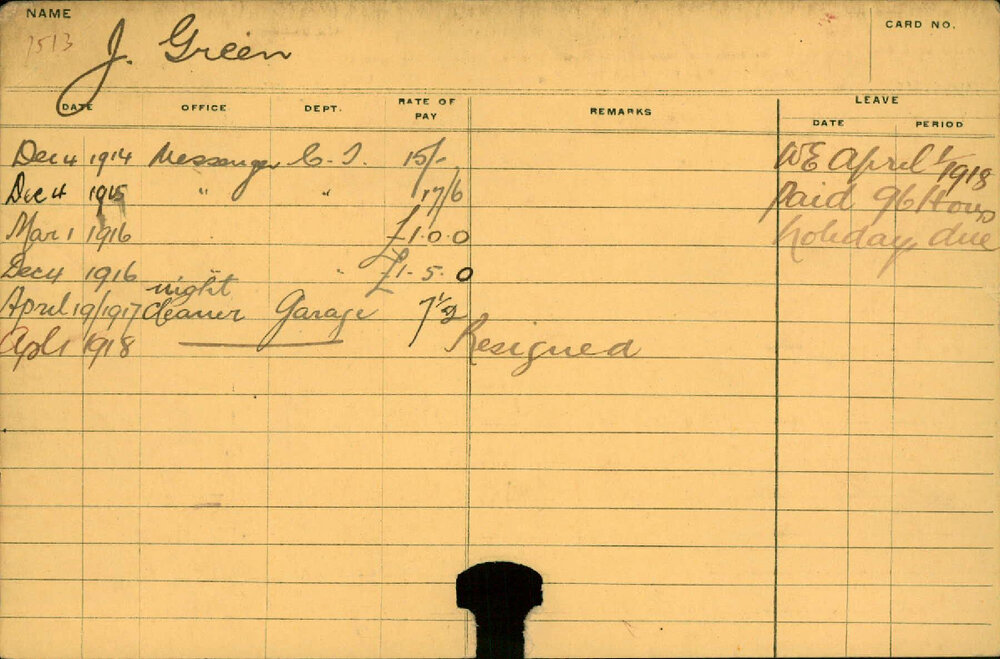 NAME
1513 J. Green
CARD NO.
DATE OFFICE DEPT. RATE OF PAY REMARKS LEAVE
DATE PERIOD
Dec 4 1914 Messenger C. T. 15/- WE April 1/1918
Dec 4 1915 " " 17/6 Paid 96 Hours
Mar 1 1916 £1.0.0 holiday due
Dec 4 1916 " £1-5.0
night
April 19/1917 Cleaner Garage 7½
Apl 1 1918 Resigned